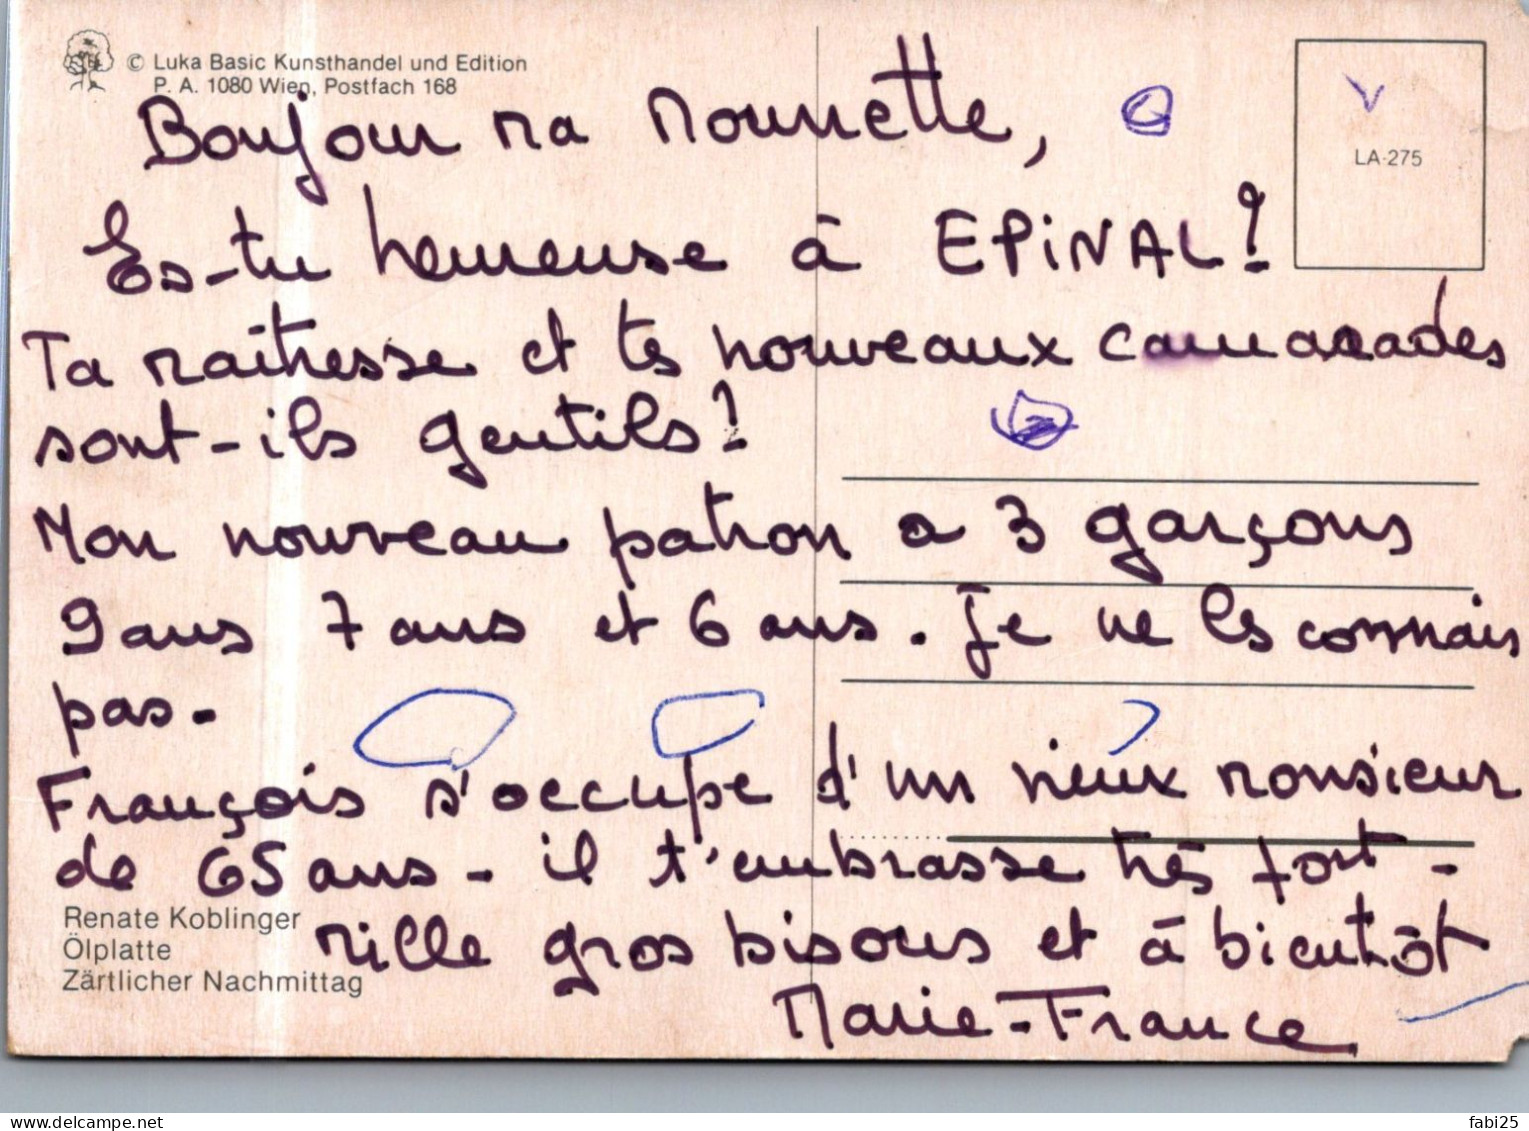 © Luka Basic Kunsthandel und Edition
P. A. 1080 Wien, Postfach 168
LA-275
Bonjour ma Nounette,
Es-tu heureuse à EPiNAL?
Ta maîtresse et tes nouveaux camarades
sont-ils gentils?
Mon nouveau patron a 3 garçons
9 ans 7 ans et 6 ans. Je ne les connais
pas.
François s'occupe d'un vieux monsieur
de 65 ans - il t'embrasse très fort -
Mille gros bisous et à bientôt
Marie-France
Renate Koblinger
Ölplatte
Zärtlicher Nachmittag
delcampe.net
fabi25